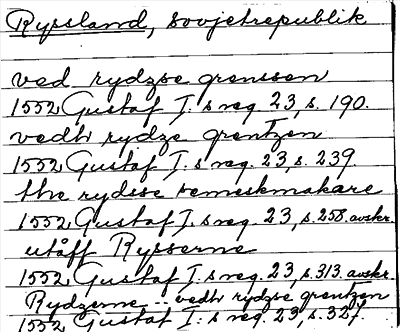 Ryssland, sovjetrepublik
ved rydzse grenssen
1552 Gustaf I:s reg. 23, s. 190.
vedh rydze grentzen
1552 Gustaf I:s reg. 23, s. 239
the rydsse semeskmakare
1552 Gustaf I:s reg. 23, s. 258. avskr.
utåff Rysserne
1552 Gustaf I:s reg. 23, s. 313. avskr.
Rydzerne .. vedh rydzse grentzen
1552 Gustaf I:s reg. 23, s. 327.